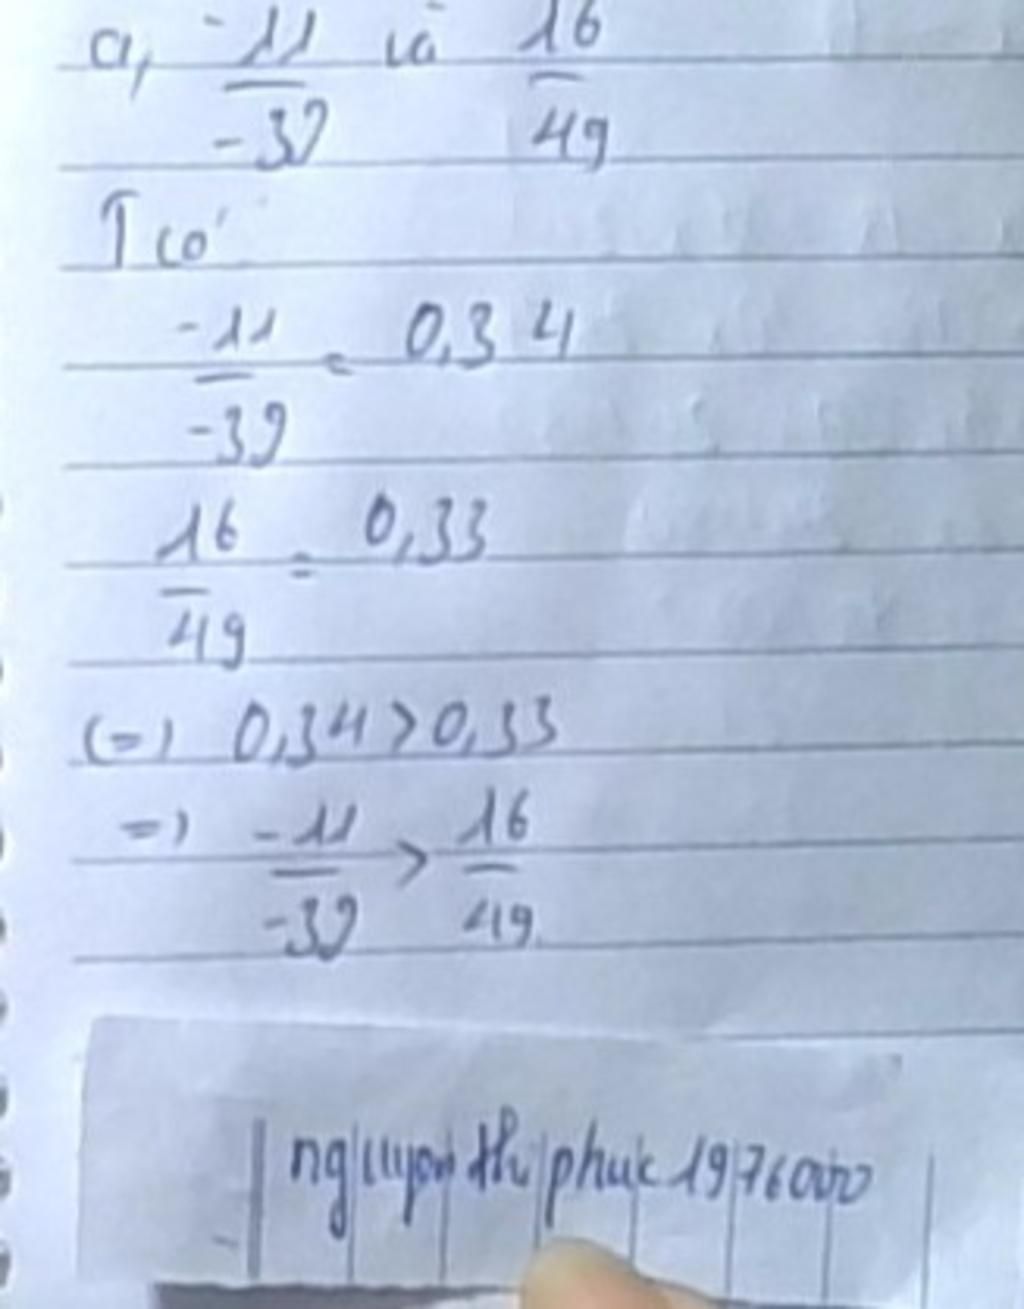 a, -11/-32 và 16/49
T có
-11/-32 = 0,34
16/49 = 0,33
(=) 0,34 > 0,33
=) -11/-32 > 16/49
nguyen thi phuc 1976000